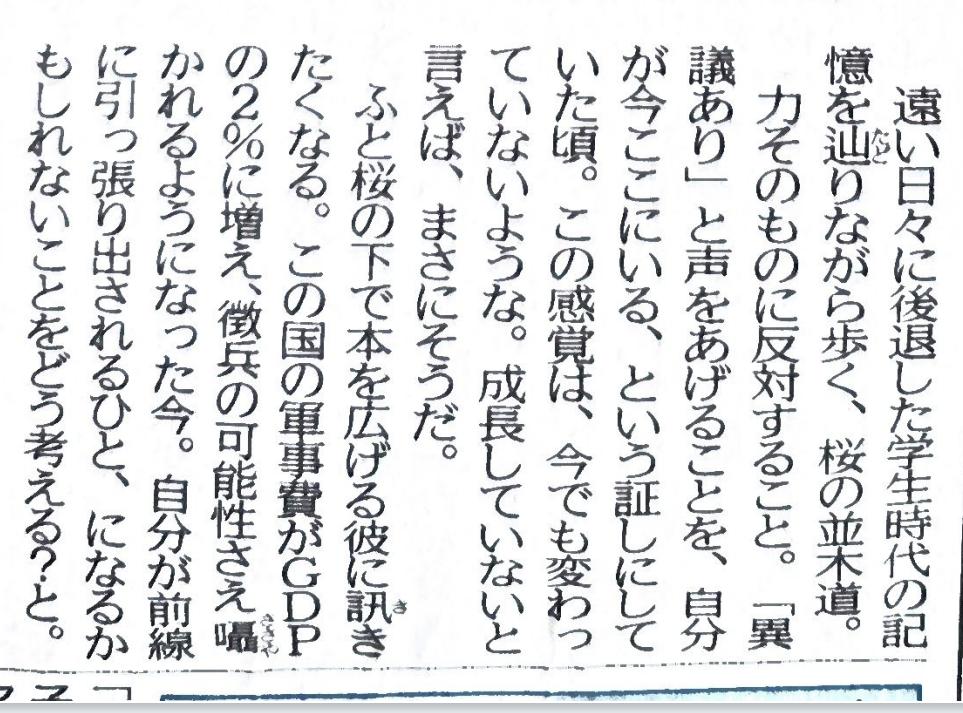 遠い日々に後退した学生時代の記
憶を辿りながら歩く、桜の並木道。
力そのものに反対すること。「異
議あり」と声をあげることを、自分
が今ここにいる、という証しにして
いた頃。この感覚は、今でも変わっ
ていないような。成長していないと
言えば、まさにそうだ。
ふと桜の下で本を広げる彼に訊き
たくなる。この国の軍事費がGDP
の2%に増え、徴兵の可能性さえ囁
かれるようになった今。自分が前線
に引っ張り出されるひと、になるか
もしれないことをどう考える?と。